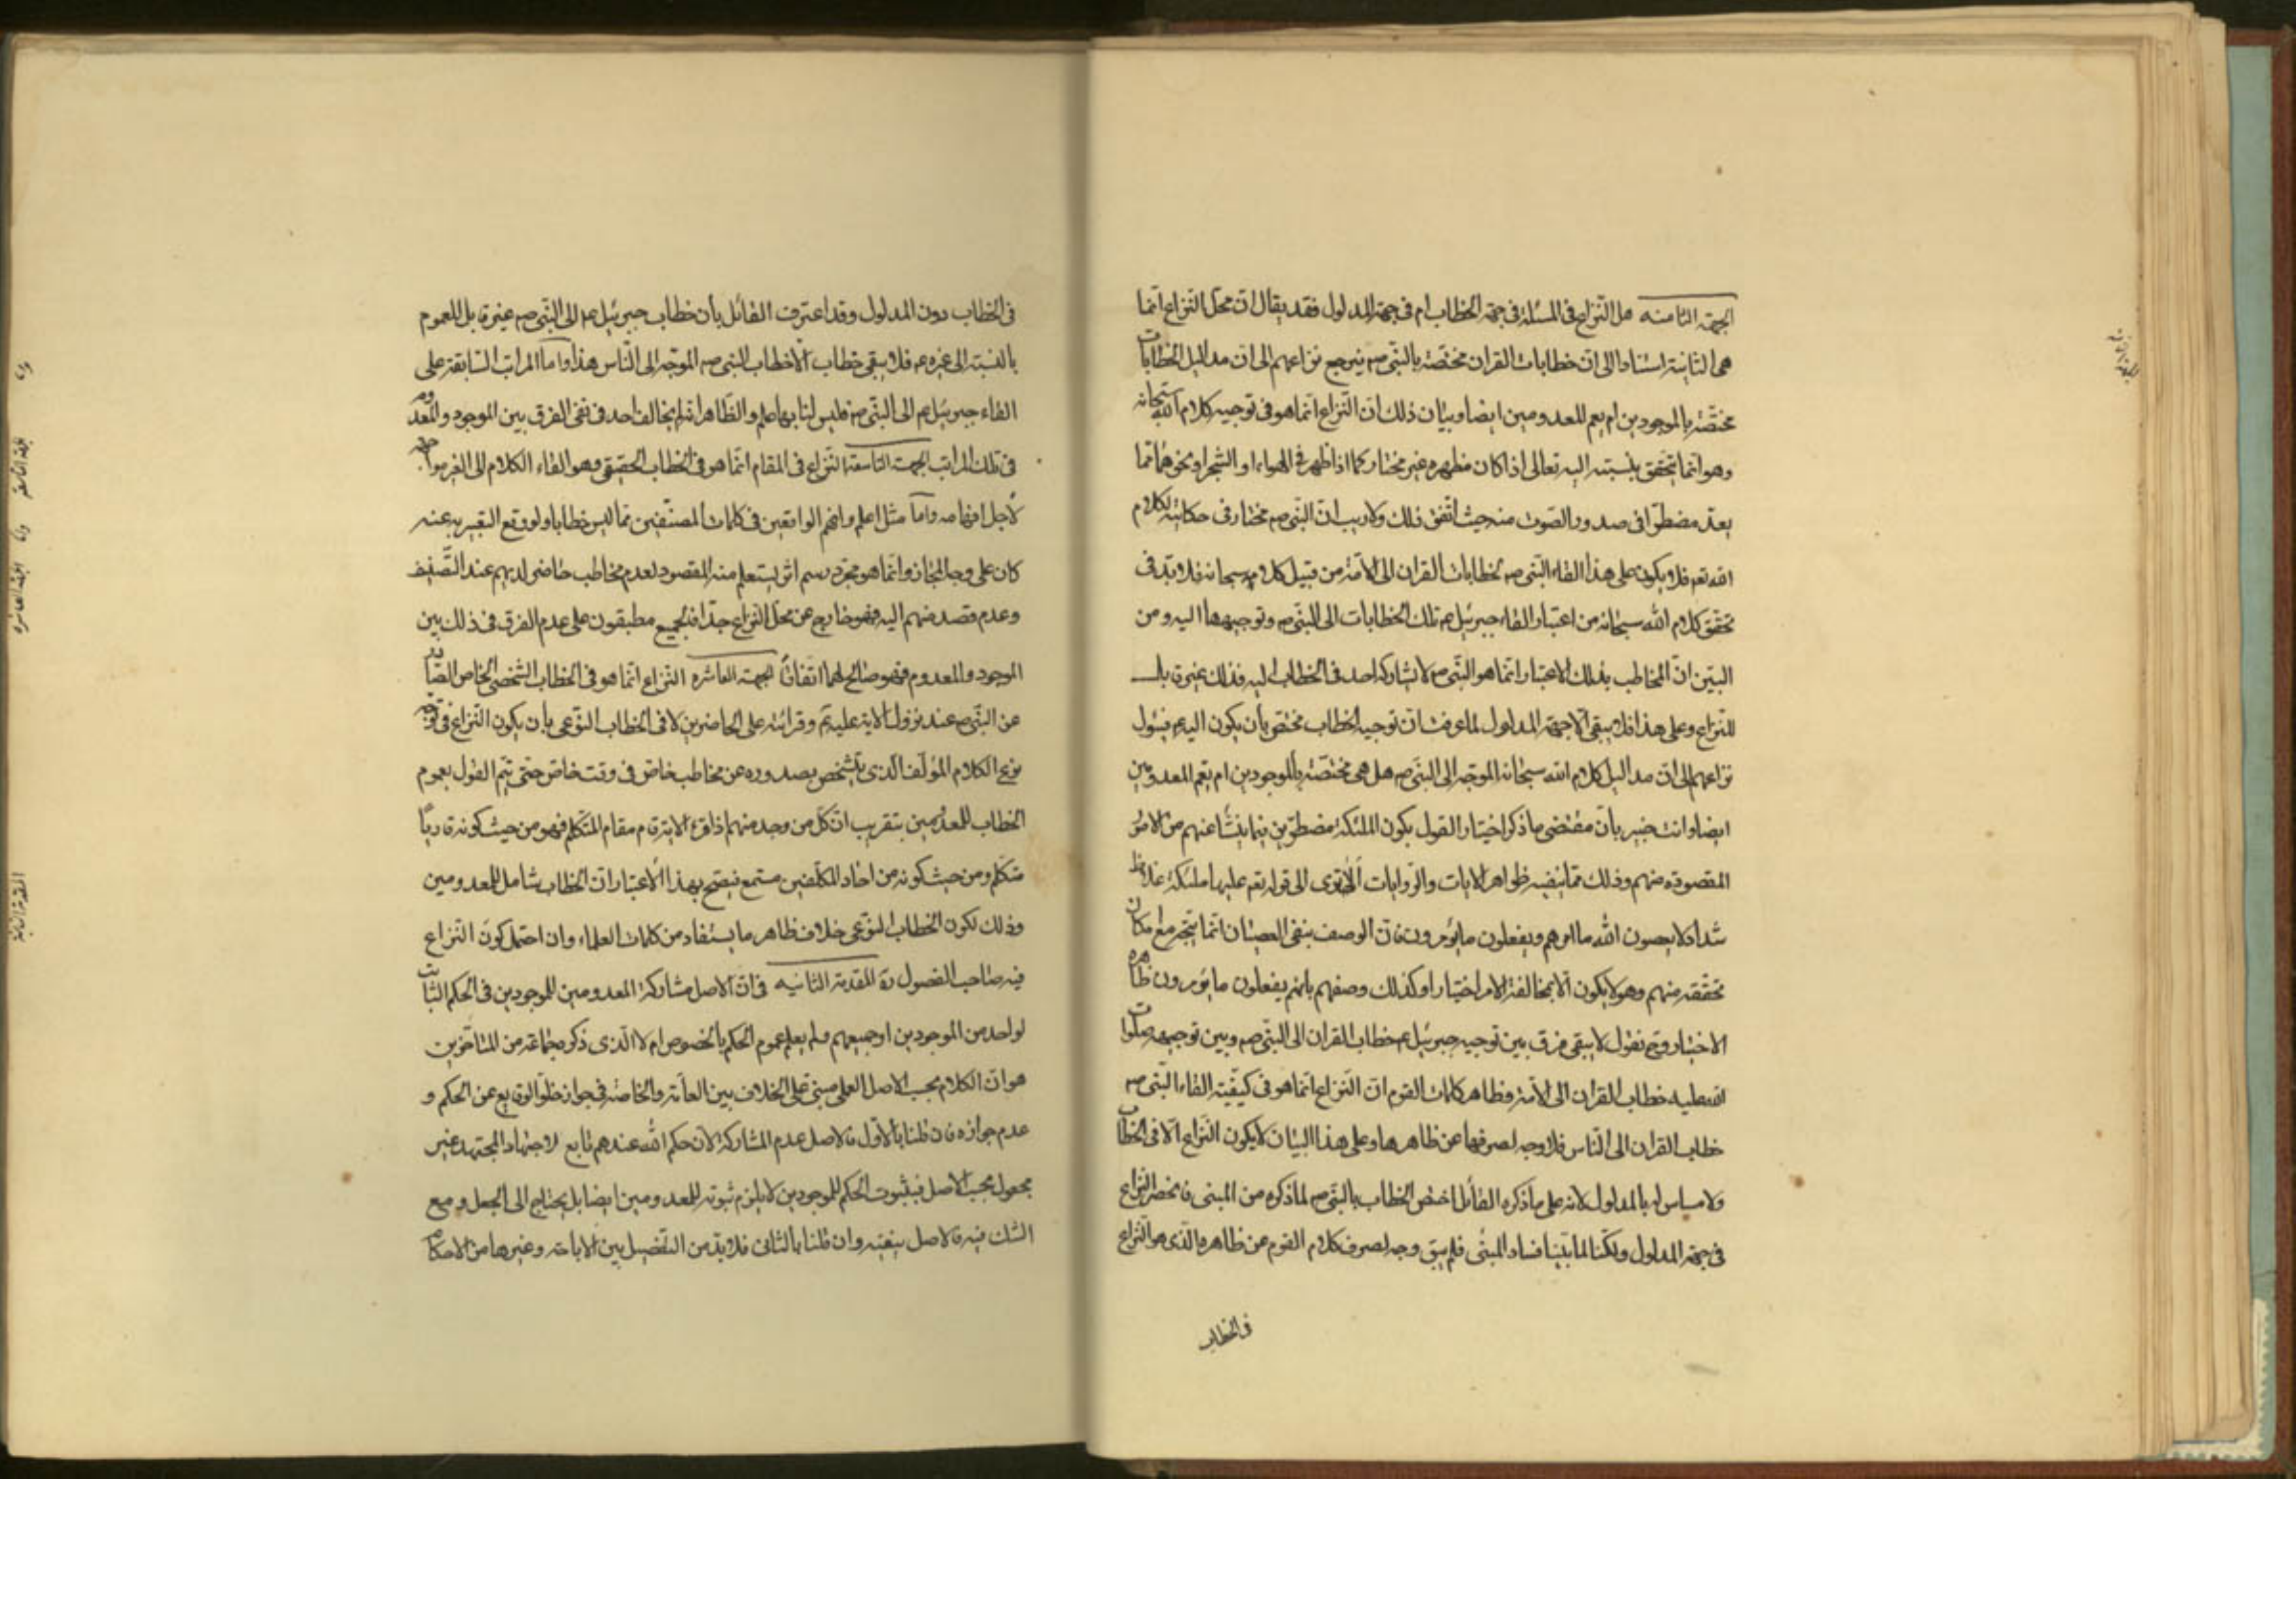 الجهة الثامنه هل النّزاع فى المسئلة فى جهة الخطاب ام فى جهة المدلول فقد يقال ان محلّ النّزاع انّما
هى الثانية استنادا الى انّ خطابات القران مختصّة بالنبّى صم فيرجع نزاعهم الى ان مداليل الخطابات
مختصّة بالموجودين ام يعم للمعدومين ايضا وبيان ذلك انّ النّزاع انّما هو فى توجيه كلام الله سبحانه
وهو انّما يتحقق بنسبته اليه تعالى اذا كان مظهره غير مختار كما اذا ظهر فى الهواء او الشجر او نحوهما ممّا
يعدّ مضطرّا فى صدور الصّوت منه حيث اتّفق ذلك ولا ريب انّ النّبى صم مختار فى حكايته لكلام
الله تعم فلا يكون على هذا القاء النبّى صم لخطابات القران الى الامّة من قبيل كلامه سبحانه فلا بدّ فى
تحقّق كلام الله سبحانه من اعتبار القاء جبرئيل عم تلك الخطابات الى النبّى صم وتوجيهها اليه ومن
البيّن انّ المخاطب بذلك الاعتبار انّما هو النبّى صم لا يشاركه احد فى الخطاب اليه فذلك غير قابل
للنّزاع وعلى هذا فلا يبقى الّا جهة المدلول لما عرفت انّ توجيه الخطاب مختصّ بأن يكون اليه عم فيئول
نزاعهم الى انّ مداليل كلام الله سبحانه الموجّه الى النبّى صم هل هى مختصّة بالموجودين ام يعّم المعدومين
ايضا وانت خبير بأنّ مقتضى ما ذكر اختيار القول بكون الملئكة مضطرّين فيما ينشأ عنهم من الامور
المقصودة منهم وذلك ممّا ينفيه ظواهر الايات والرّوايات الا ترى الى قوله تعم عليها ملئكة غلاظ
شداد لا يعصون الله ما امرهم ويفعلون ما يؤمرون فانّ الوصف بنفى العصيان انّما يتّجه مع امكان
تحققه منهم وهو لا يكون الّا بمخالفة الامر اختيارا وكذلك وصفهم بانّهم يفعلون ما يؤمرون ظاهره
الاختيار وح نقول لا يبقى فرق بين توجيه جبرئيل عم خطاب القران الى النبّى صم وبين توجيهه صلوات
الله عليه خطاب القران الى الامّة وظاهر كلمات القوم انّ النّزاع انّما هو فى كيفيّة القاء النبّى صم
خطاب القران الى النّاس فلا وجه لصرفها عن ظاهرها وعلى هذا البيان لا يكون النّزاع الّا فى الخطاب
ولا مساس له بالمدلول لانه على ما ذكره القائل اختصّ الخطاب بالنبّى صم لما ذكره من المبنى فانحصر النزاع
فى جهة المدلول ولكنّا لما بيّنا فساد المبنى فلم يبق وجه لصرف كلام القوم عن ظاهره الّذى هو النّزاع
فى الخطاب
فى الخطاب دون المدلول وقد اعترف القائل بأن خطاب جبرئيل عم الى النبّى صم غير قابل للعموم
بالنسبة الى غيره عم فلا يبقى خطاب الّا خطاب النبى صم الموجّه الى النّاس هذا وامّا المراتب السّابقة على
القاء جبرئيل عم الى النبّى صم فليس لنا بها علم والظّاهر انه لم يخالف احد فى نفى الفرق بين الموجود والمعدوم
فى تلك المراتب الجهة التاسعة النّزاع فى المقام انّما هو فى الخطاب الحقيقى وهو القاء الكلام الى الغير مواجهة
لأجل افهامه وامّا مثل اعلم وافهم الواقعين فى كلمات المصنّفين ممّا ليس خطابا ولو وقع التعبير به عنه
كان على وجه المجاز وانّما هو مجرّد رسم اثر ليستعلم منه المقصود لعدم مخاطب حاضر لديهم عند التّصنيف
وعدم قصد منهم اليه فهو خارج عن محلّ النّزاع جدّا فالجميع مطبقون على عدم الفرق فى ذلك بين
الموجود والمعدوم فهو صالح لهما اتّفاقاً الجهة العاشره النّزاع انّما هو فى الخطاب الشّخصى الخاصّ الصّادر
عن النبّى صم عند نزول الاية عليه ثم وقرائته على الحاضرين لا فى الخطاب النّوعى بأن يكون النّزاع فى توجّه
نوع الكلام المؤلّف الّذى يتشخّص بصدوره عن مخاطب خاصّ فى وقت خاصّ حتّى يتمّ القول بعموم
الخطاب للمعدومين بتقريب انّ كلّ من وجد منهم اذا قرء الاية قام مقام المتكلّم فهو من حيث كونه قاريًا
متكلّم ومن حيث كونه من احاد المكلّفين مستمع فيصّح بهذا الأعتبار انّ الخطاب شامل للمعدومين
وذلك لكون الخطاب النوّعى خلاف ظاهر ما يستفاد من كلمات العلماء وان احتمل كون النّزاع
فيه صاحب الفصول ره المقدمة الثانيه فى انّ الاصل مشاركة المعدومين للموجودين فى الحكم الثّابت
لواحد من الموجودين او جميعهم ولم يعلم عموم الحكم بالخصوص ام لا الّذى ذكره جماعة من المتاخّرين
هو انّ الكلام بحسب الاصل العملى مبنىّ على الخلاف بين العامّة والخاصّة فى جواز خلوّ الوقايع عن الحكم و
عدم جوازه فان قلنا بالأوّل فالاصل عدم المشاركة لأنّ حكم الله عندهم تابع لاجتهاد المجتهد غير
مجعول بحسب الاصل فبثبوت الحكم للموجودين لا يلزم ثبوته للمعدومين ايضا بل يحتاج الى الجعل ومع
الشك فيه فالاصل ينفيه وان قلنا بالثانى فلا بدّ من التفصيل بين الاباحة وغيرها من الاحكام